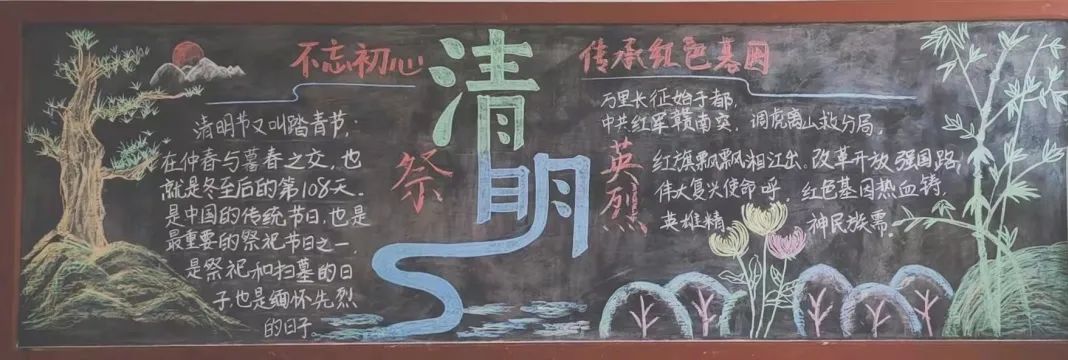 不忘初心
清明
传承红色基因
祭
英烈
清明节又叫踏青节，
在仲春与暮春之交，也
就是冬至后的第108天。
是中国的传统节日，也是
最重要的祭祀节日之一，
是祭祀和扫墓的日
子也是缅怀先烈
的日子
万里长征始于都，
中共红军赣南突，调虎离山救分局，
红旗飘飘湘江出。改革开放强国路，
伟大复兴使命呼，红色基因热血铸，
英雄精神民族需。